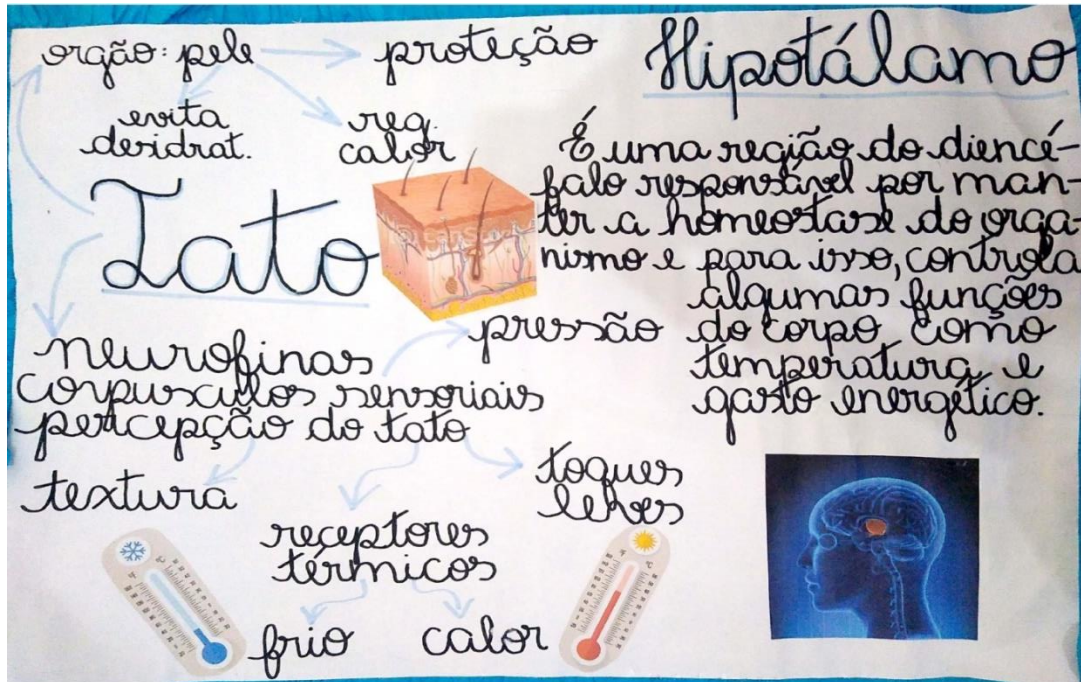 orgão: pele
proteção
evita
desidrat.
reg.
calor
Tato
neurofinas
corpusculos sensoriais
percepção do tato
pressão
textura
toques
leves
receptores
térmicos
frio
calor
Hipotálamo
É uma região do diencé-
falo responsável por man-
ter a homeostase do orga-
nismo e para isso, controla
algumas funções
do corpo, como
temperatura e
gasto energético.